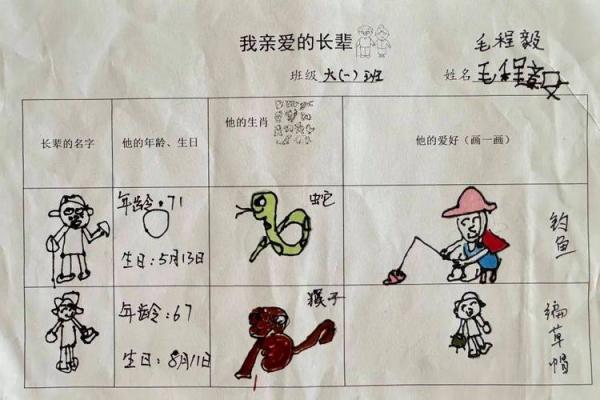 我亲爱的长辈
毛程毅
班级 大(一)班 姓名 毛程毅
长辈的名字 他的年龄、生日 他的生肖 他的爱好（画一画）
年龄:71 蛇 钓鱼
生日:5月13日
年龄:67 猴子 编草帽
生日:8月11日